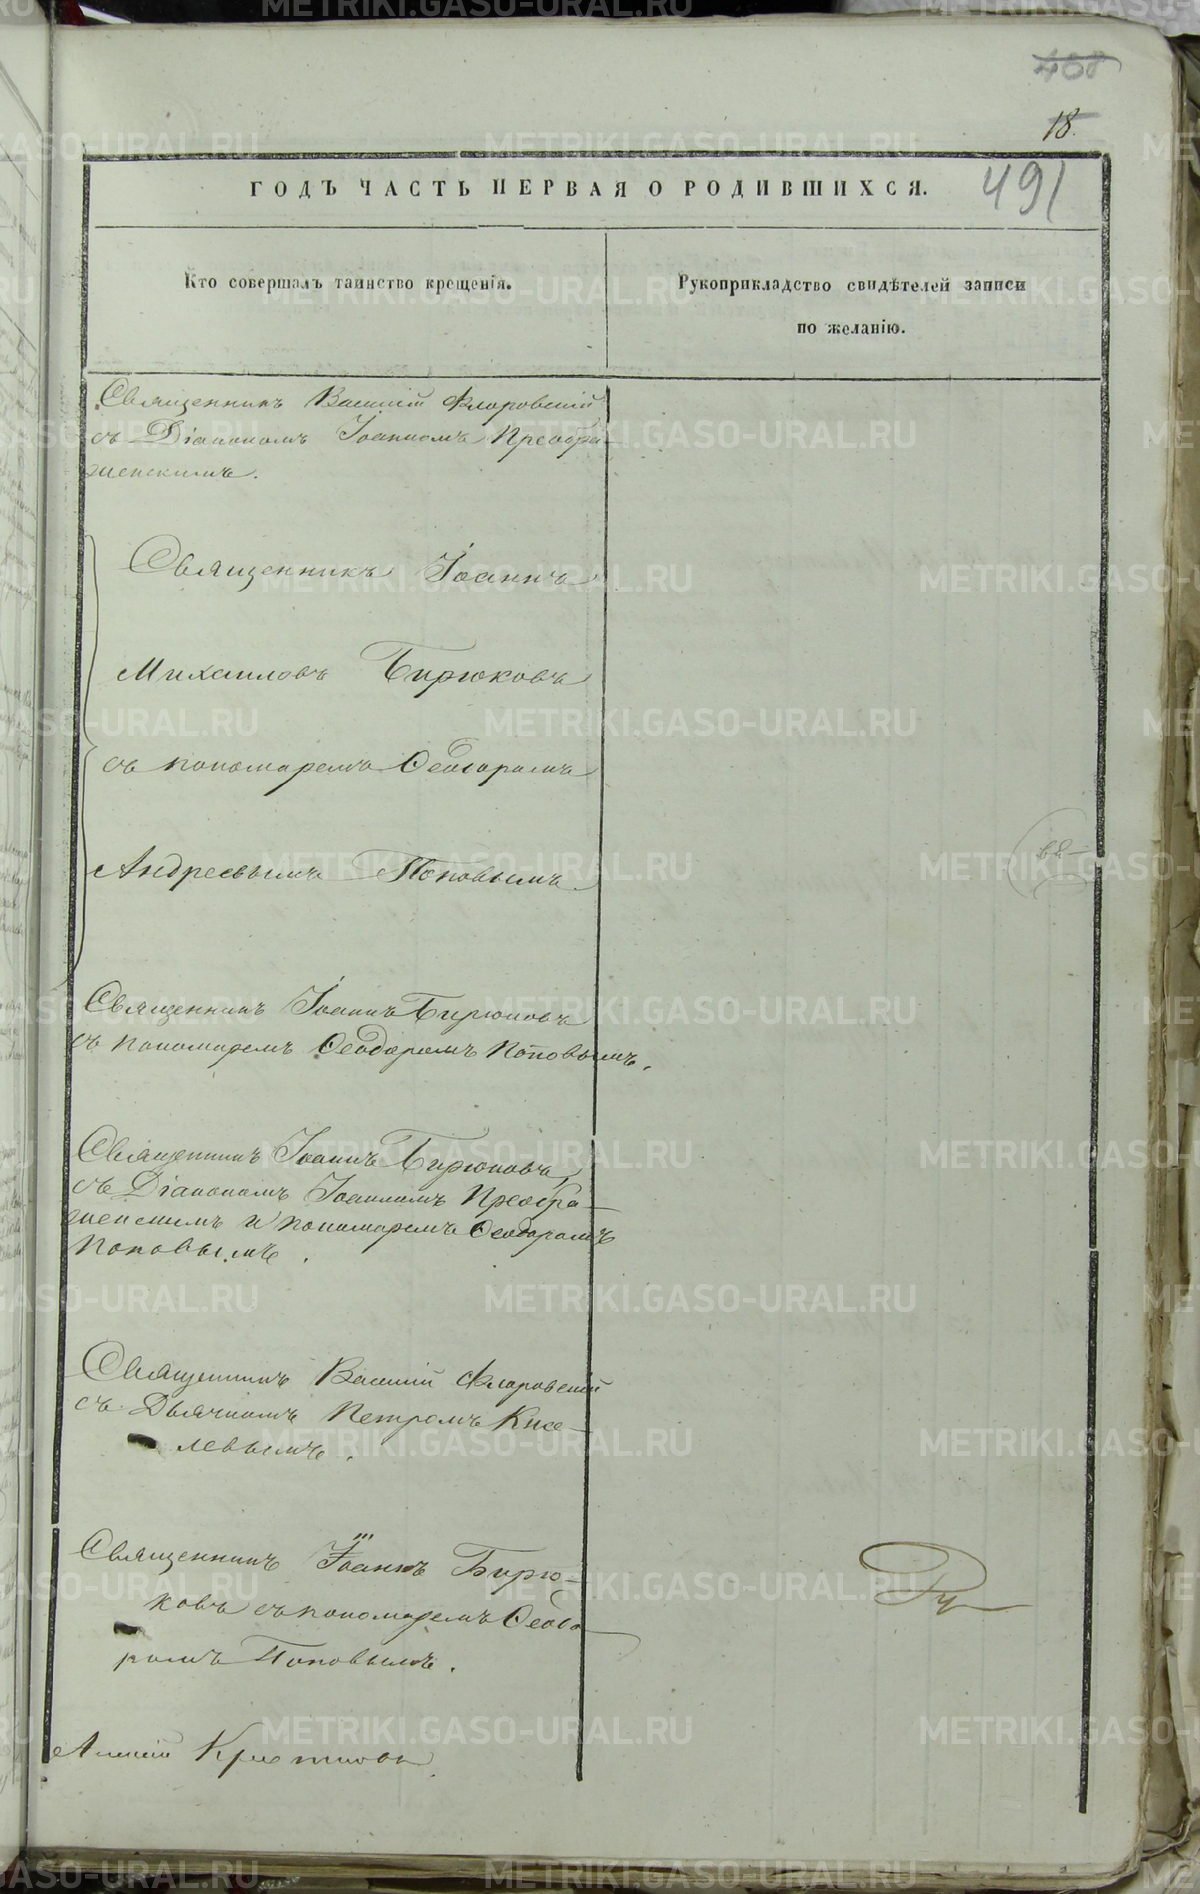 408
18.
491
ГОДЪ ЧАСТЬ ПЕРВАЯ О РОДИВШИХСЯ.
Кто совершалъ таинство крещенія.
Рукоприкладство свидѣтелей записи
по желанію.
Священникъ Василій Флоровскій
съ Діакономъ Іоанномъ Преобра-
женскимъ.
Священникъ Іоаннъ
Михаиловъ Бирюковъ
съ пономаремъ Ѳеодоромъ
Андреевымъ Поповымъ
Священникъ Іоаннъ Бирюковъ
съ пономаремъ Ѳеодоромъ Поповымъ.
Священникъ Іоаннъ Бирюковъ
съ Діакономъ Іоанномъ Преобра-
женскимъ и пономаремъ Ѳеодоромъ
Поповымъ.
Священникъ Василій Флоровскій
съ Дьячкомъ Петромъ Кисе-
левымъ.
Священникъ Іоаннъ Бирю-
ковъ съ пономаремъ Ѳеодо-
ромъ Поповымъ.
METRIKI.GASO-URAL.RU